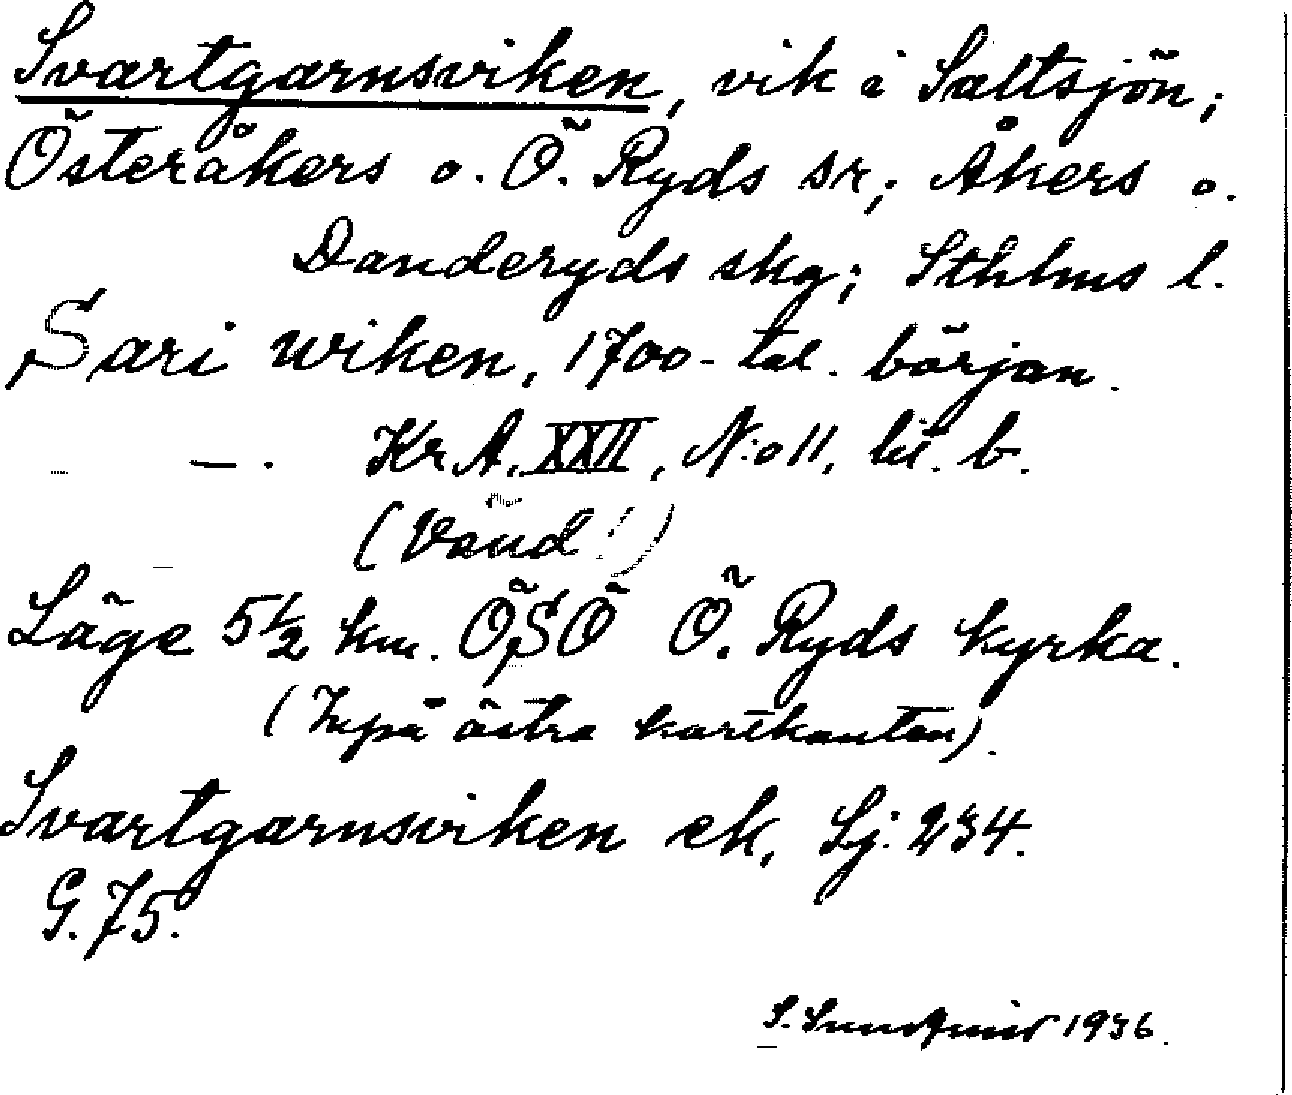 Svartgarnsviken, vik i Saltsjön;
Österåkers o. Ö. Ryds sr; Åkers o.
Danderyds skg; Sthlms l.
Sari wiken, 1700-tal. början.
— . KrA. XXII, N:o 11, lit. b.
(Vänd!)
Läge 5 1/2 km. ÖSÖ Ö. Ryds kyrka.
(Inpå östra kartkanten).
Svartgarnsviken ek, Sj. 234.
G. 75.
S. 1936.